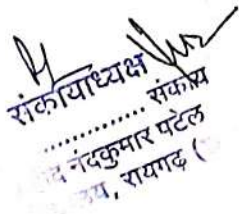 संकायाध्यक्ष
.................. संकाय
नंदकुमार पटेल
, रायगढ़ (